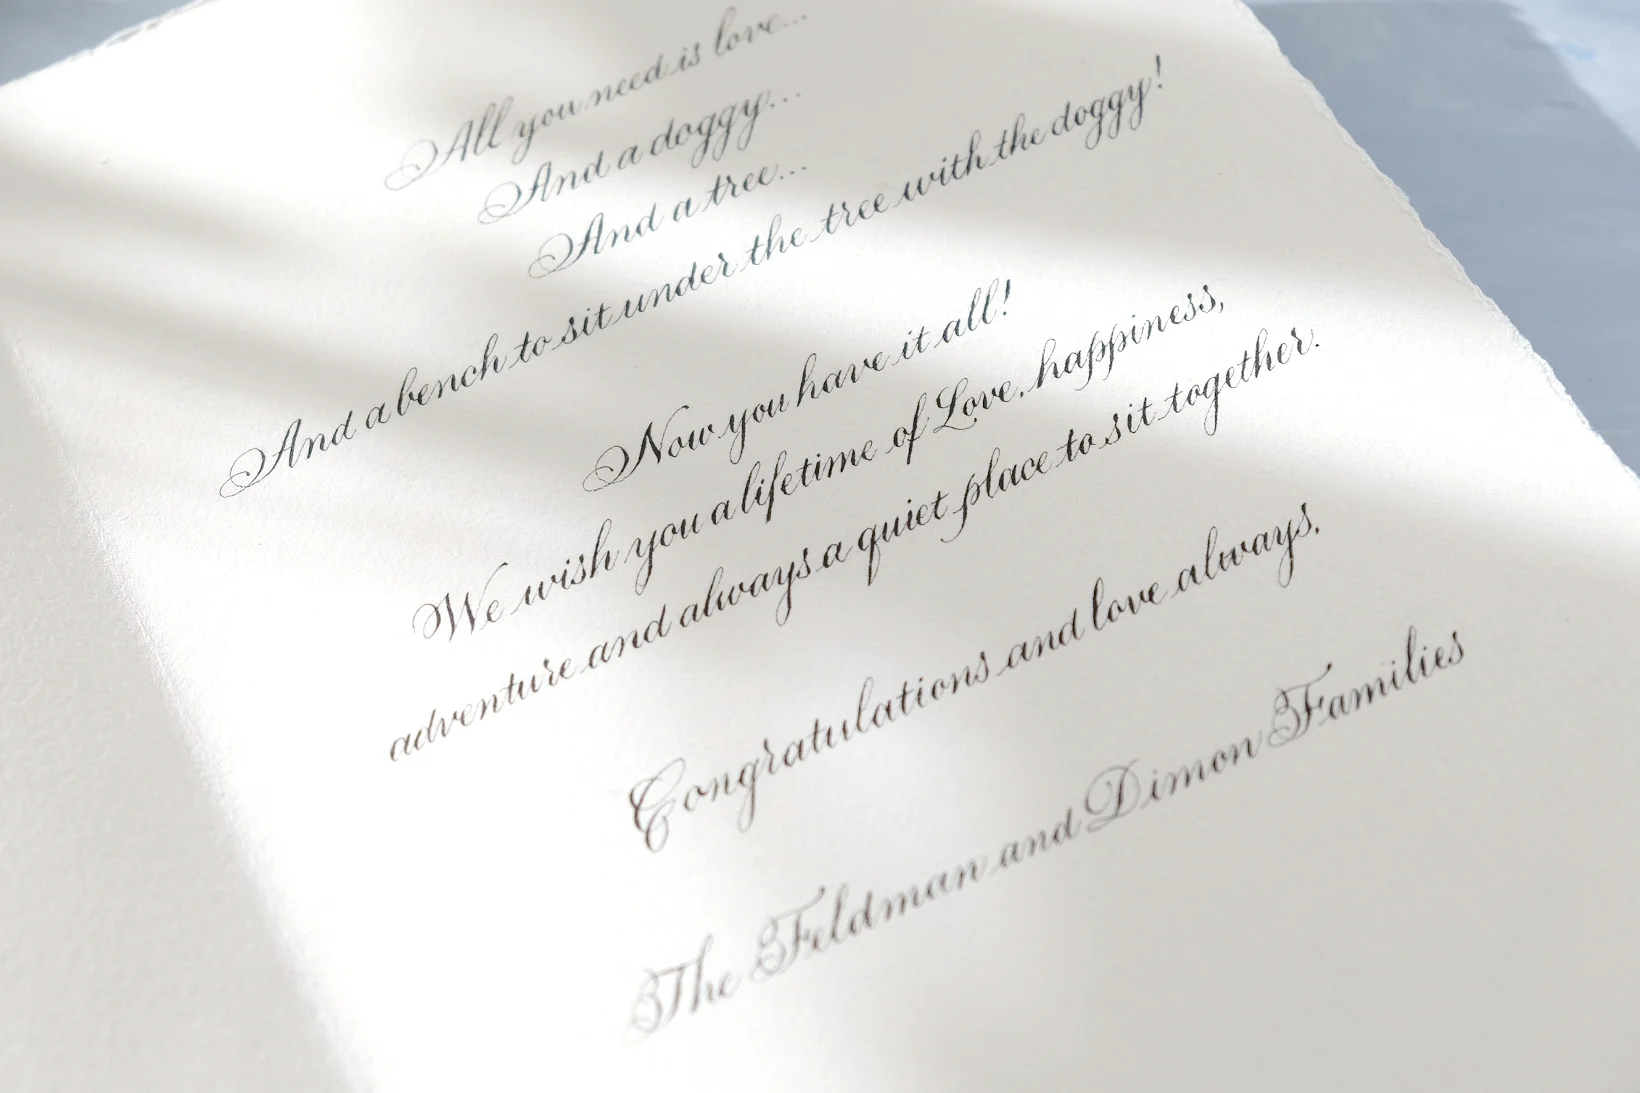 All you need is love...
And a doggy...
And a tree...
And a bench to sit under the tree with the doggy!
Now you have it all!
We wish you a lifetime of Love, happiness,
adventure and always a quiet place to sit together.
Congratulations and love always,
The Feldman and Dimon Families